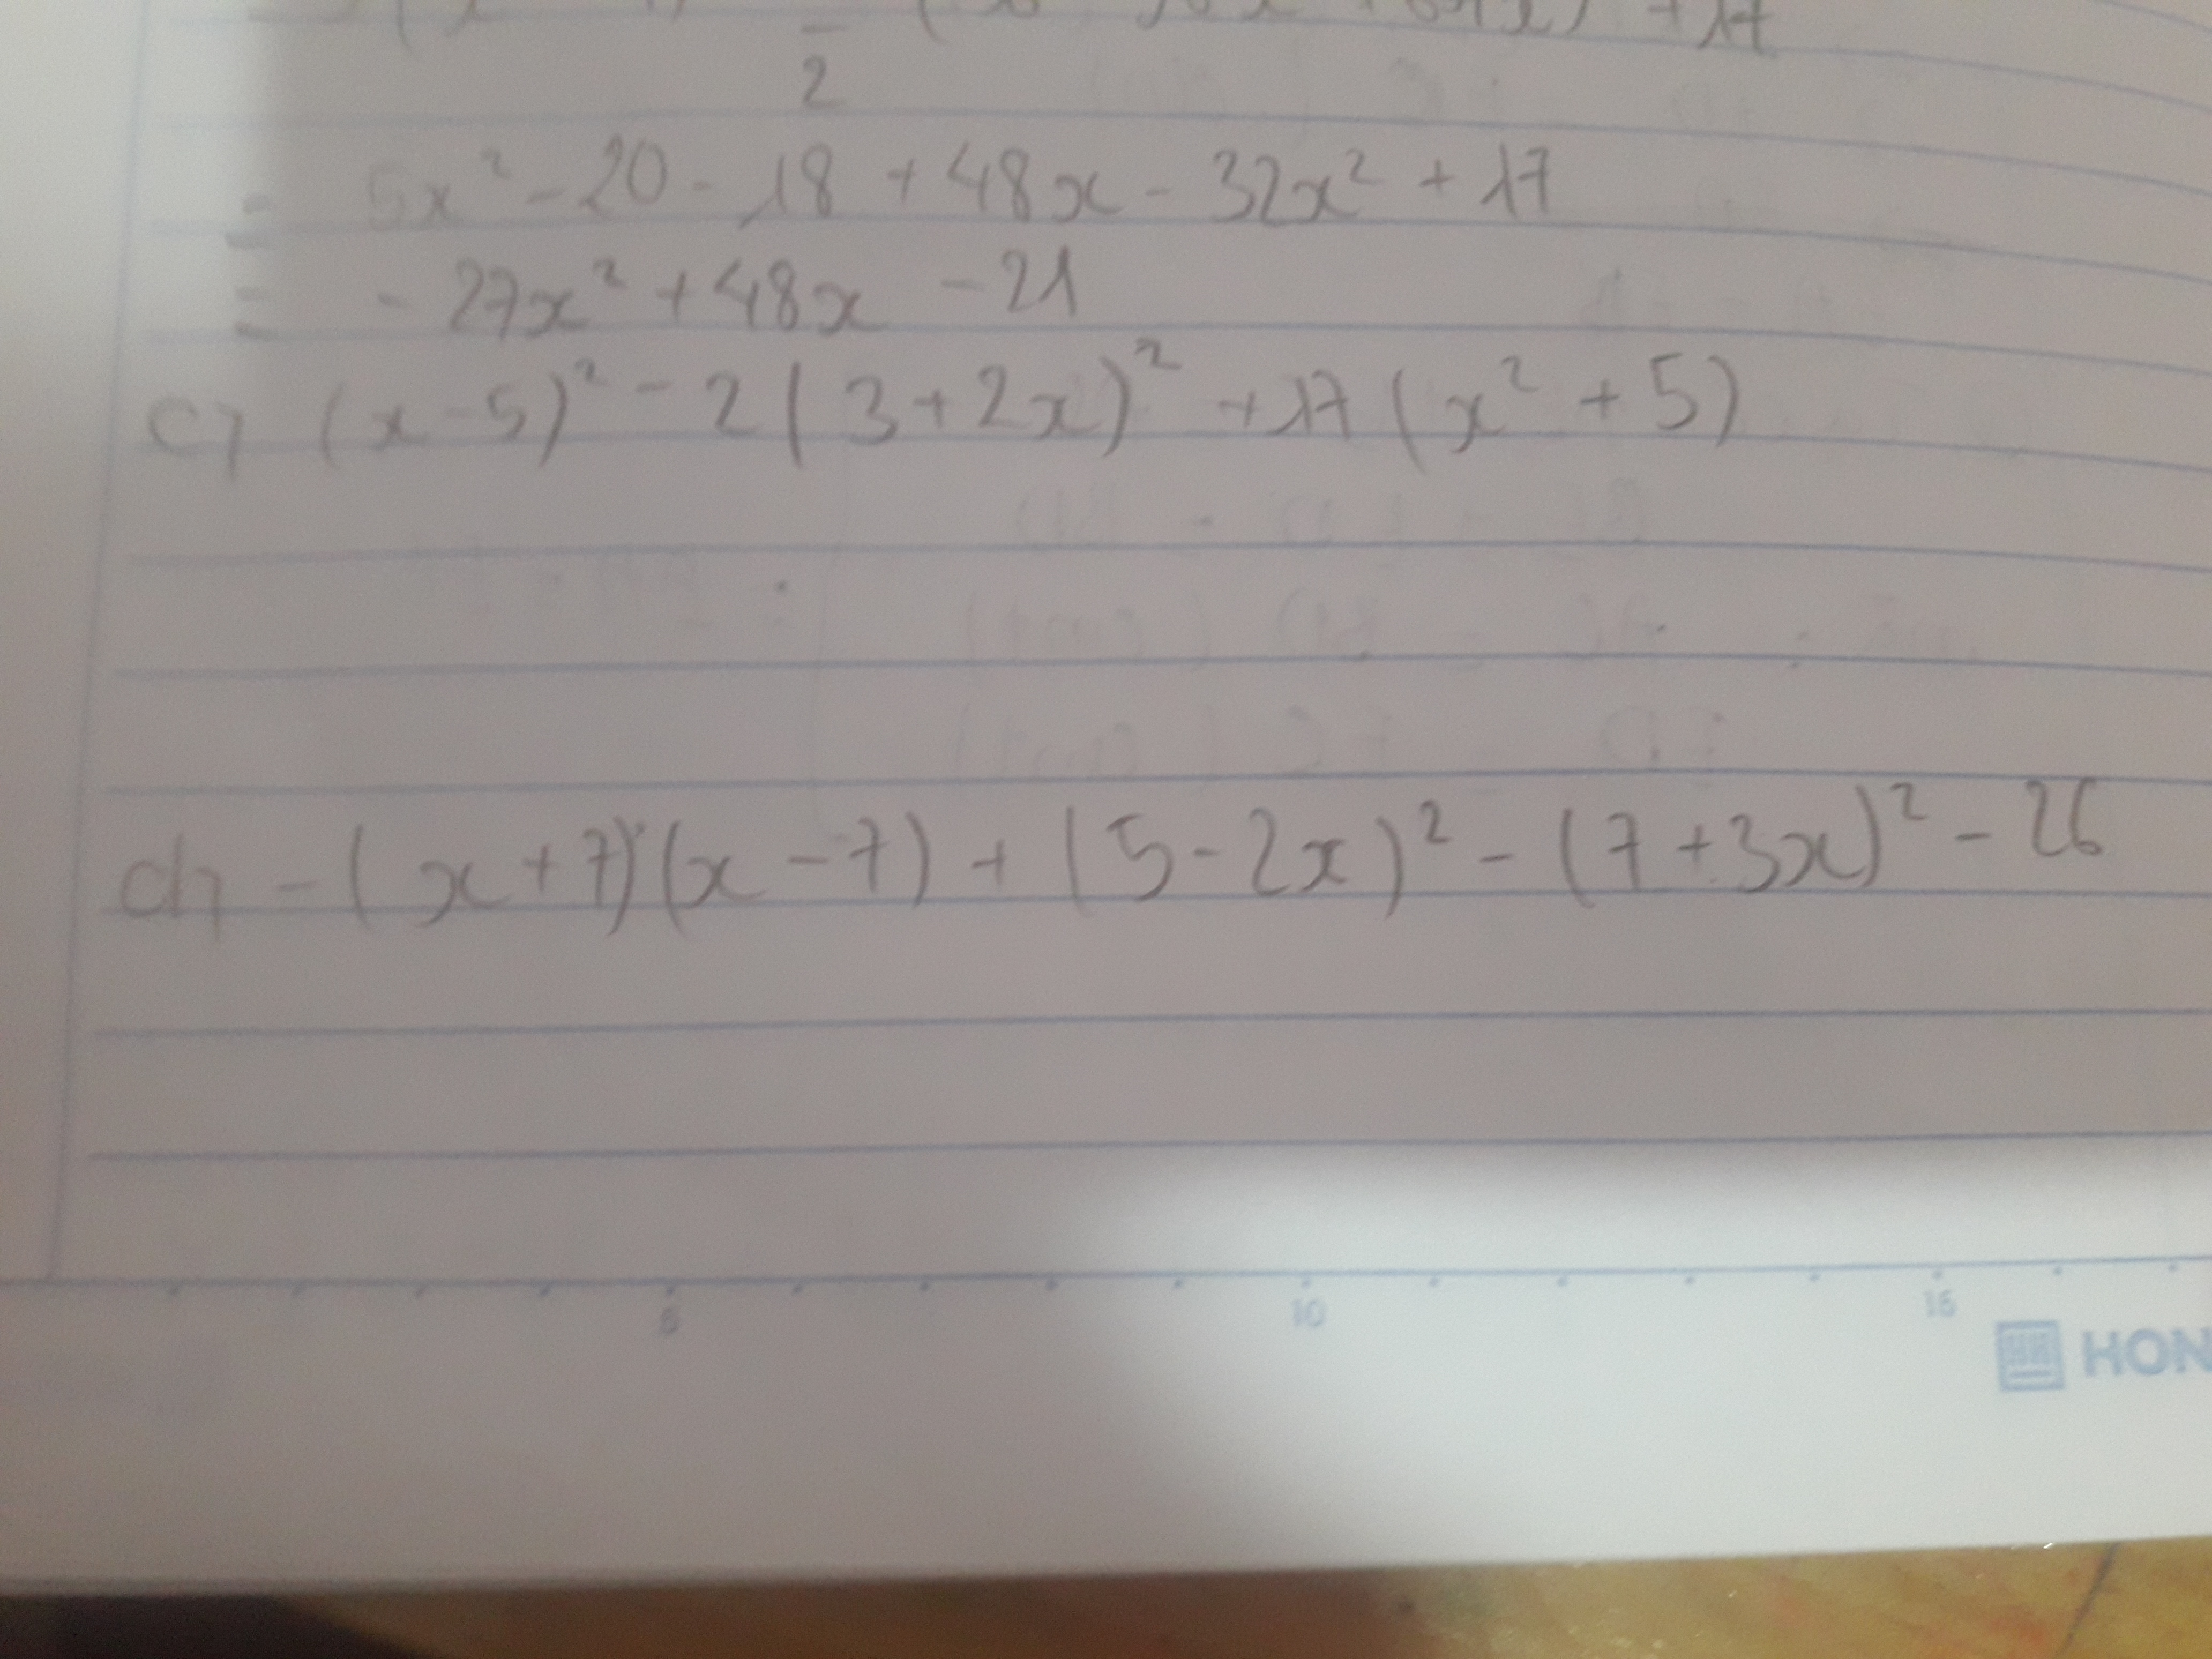 2
= 5x² - 20 - 18 + 48x - 32x² + 17
= - 27x² + 48x - 21
c) (x - 5)² - 2(3 + 2x)² + 17(x² + 5)
d) - (x + 7)(x - 7) + (5 - 2x)² - (7 + 3x)² - 26
5 10 15
HON